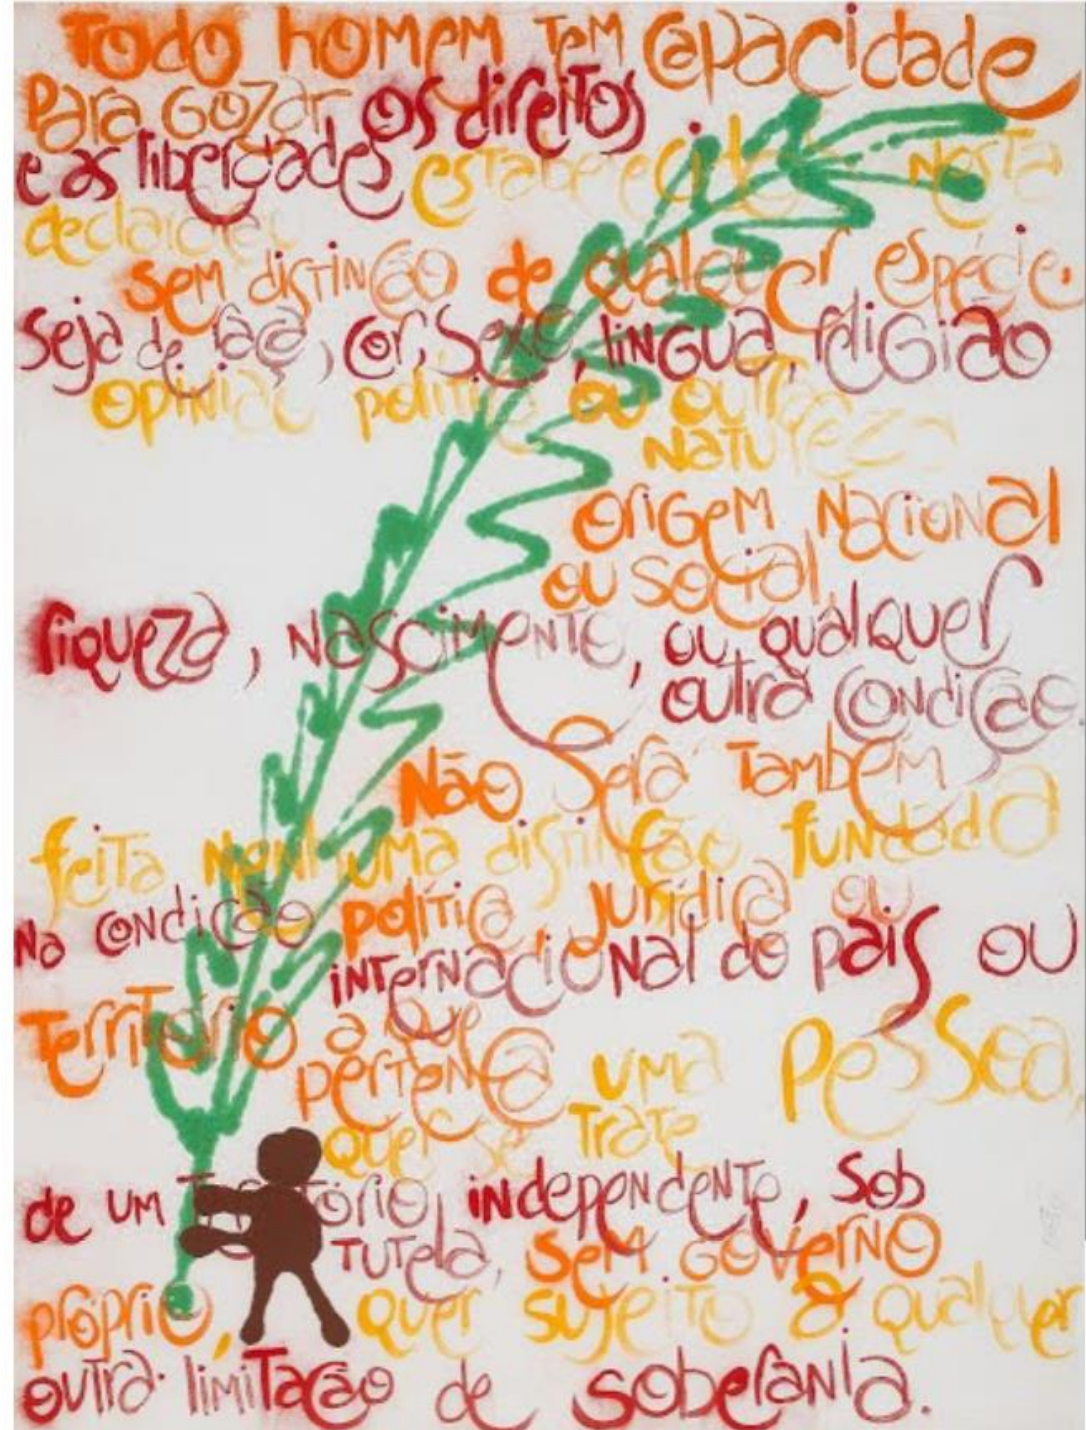 Todo homem tem capacidade
para gozar os direitos
e as liberdades estabelecidos nesta
declaração
sem distinção de qualquer espécie.
Seja de raça, cor, sexo, língua, religião
opinião política ou outra
natureza
origem nacional
ou social,
riqueza, nascimento, ou qualquer
outra condição
Não será também
feita nenhuma distinção fundada
na condição política, jurídica ou
internacional do país ou
território a que
pertença uma pessoa,
quer se trate
de um território, independente, sob
tutela, sem governo
próprio, quer sujeito a qualquer
outra limitação de soberania.